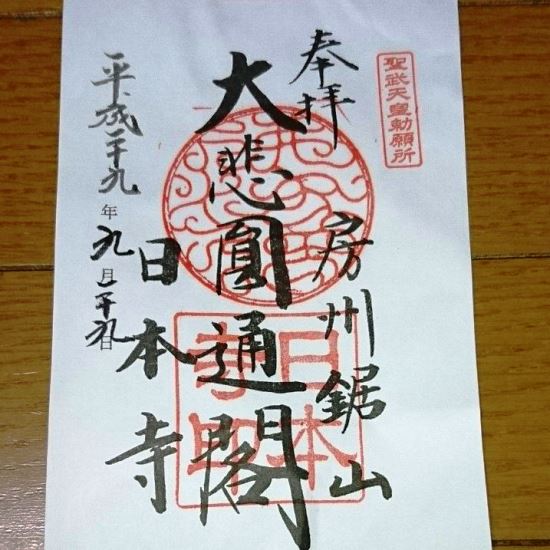 聖武天皇勅願所
奉拝
房州鋸山
大悲圓通閣
日本寺
平成二十九年九月二十九日
日本寺印